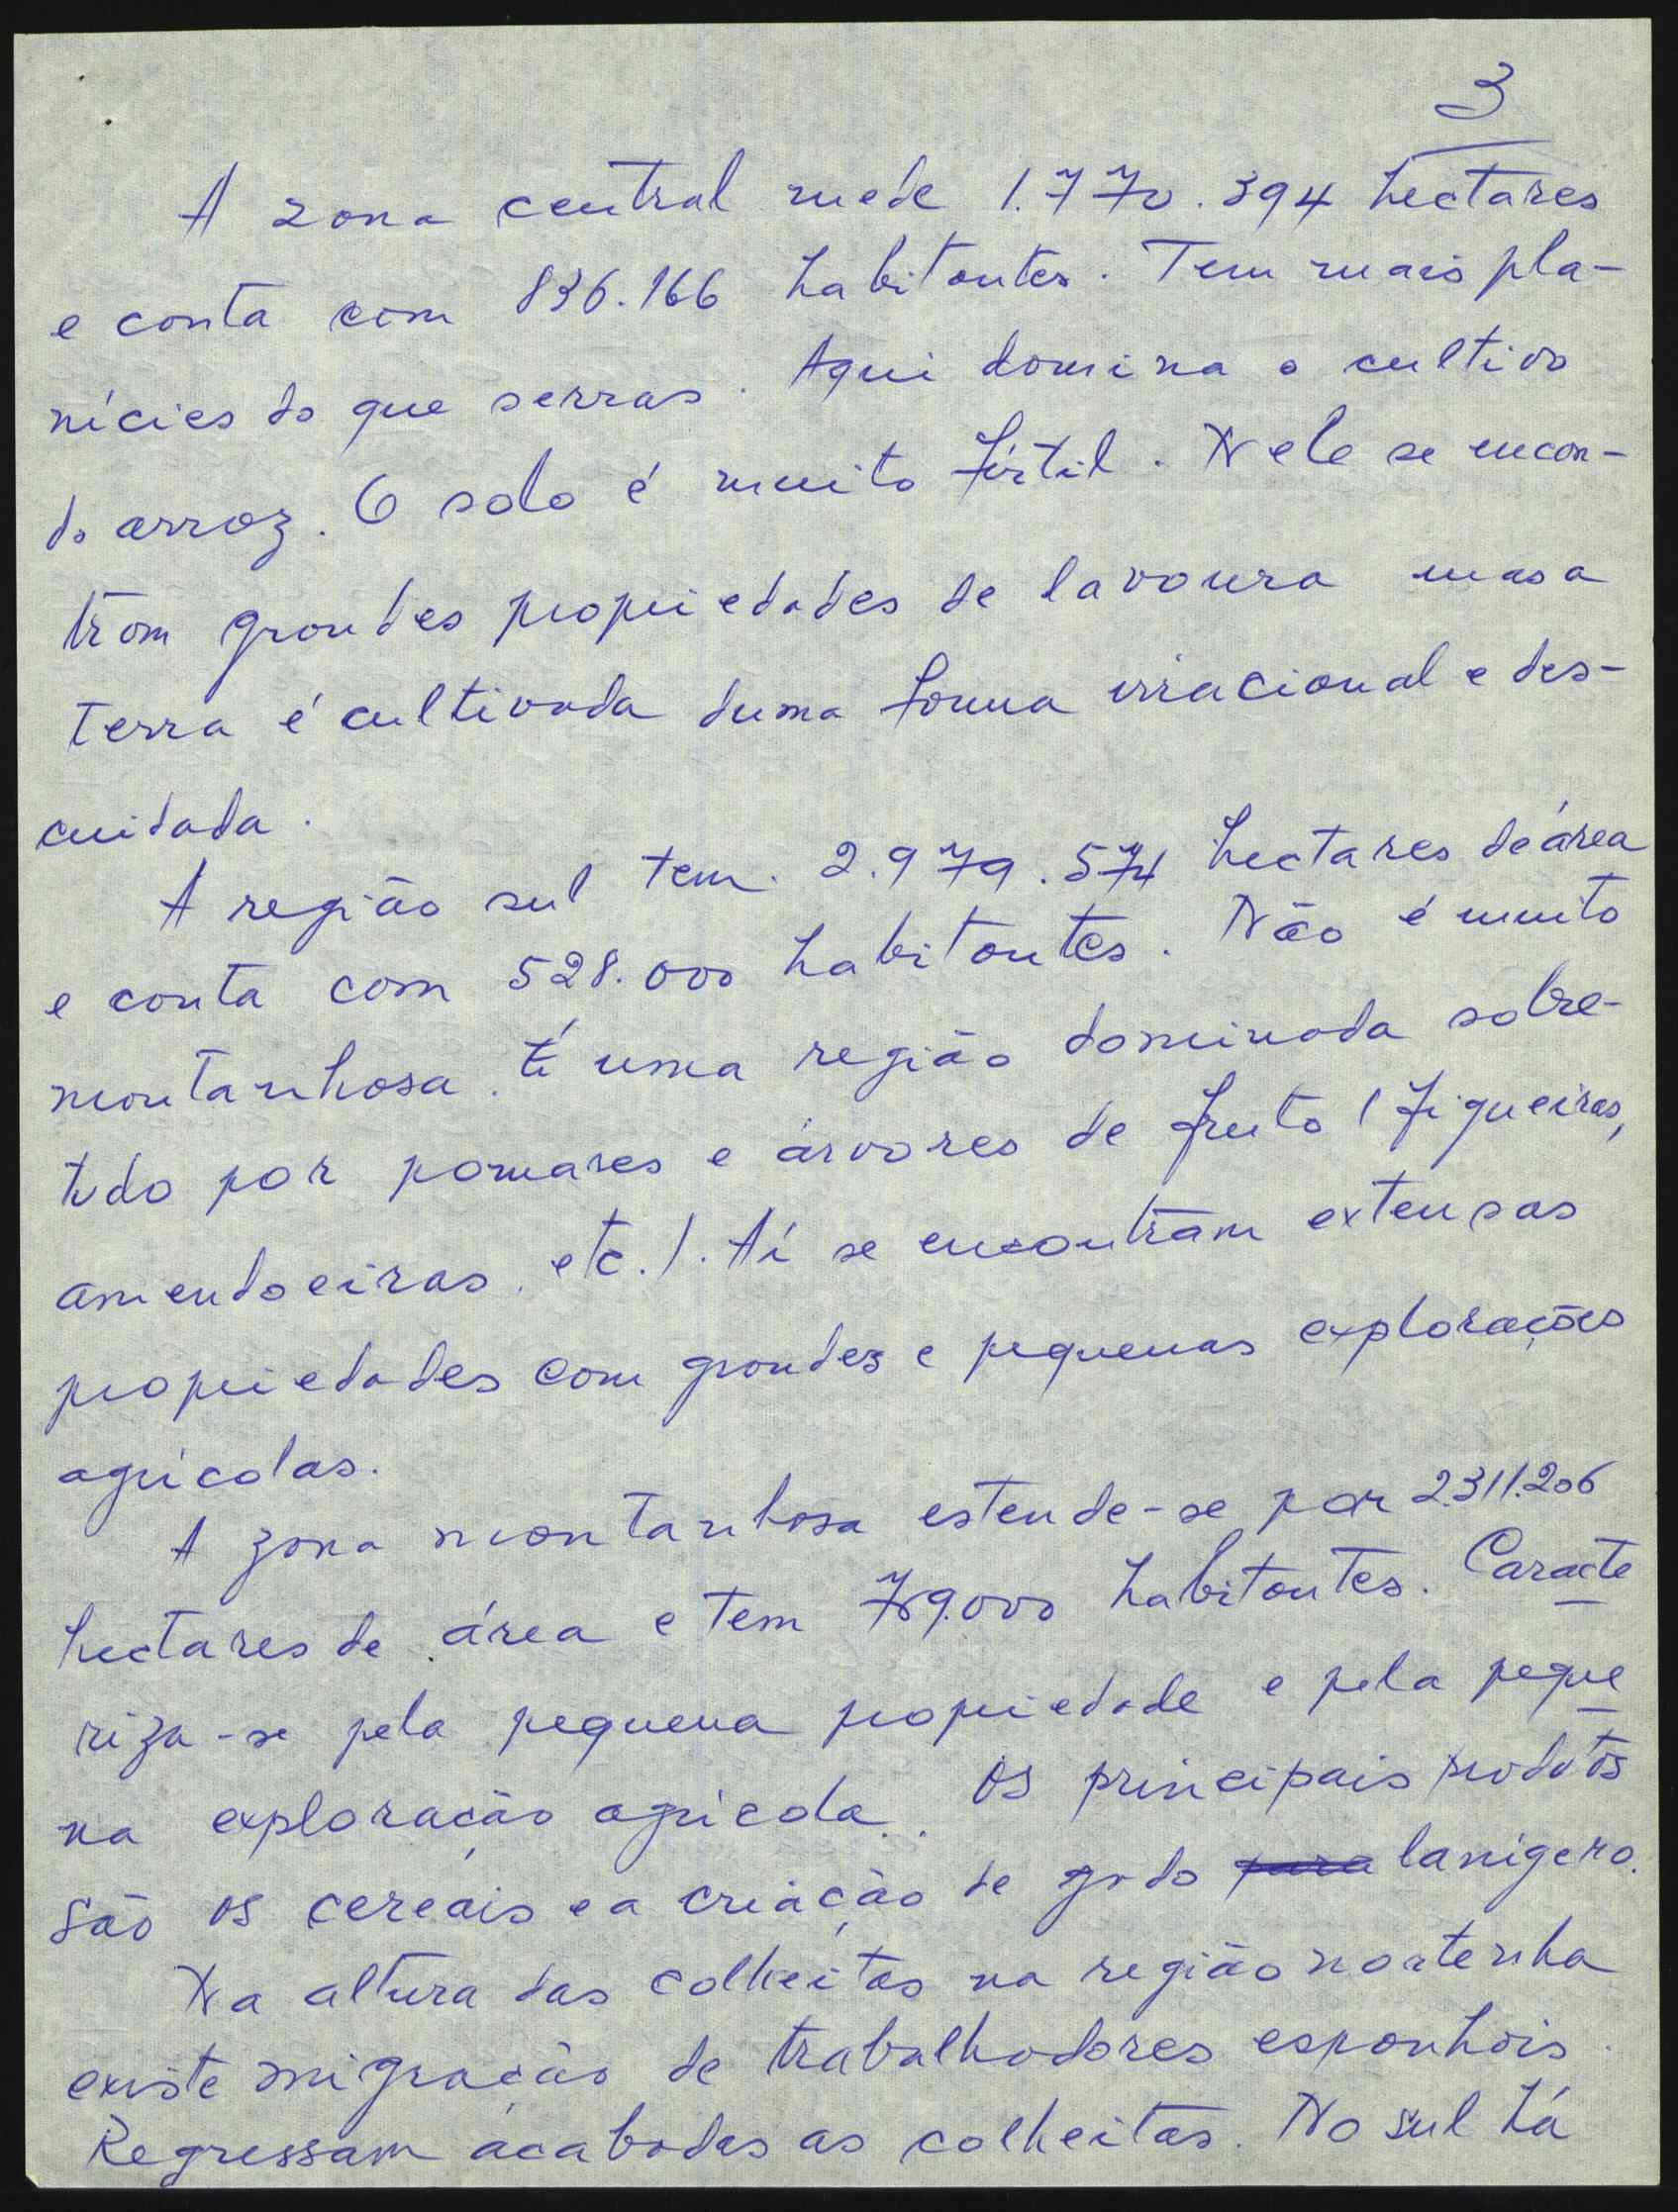 3
A zona central mede 1.770.394 hectares
e conta com 836.166 habitantes. Tem mais pla-
nícies do que serras. Aqui domina o cultivo
do arroz. O solo é muito fértil. Nele se encon-
tram grandes propriedades de lavoura mas a
terra é cultivada duma forma irracional e des-
cuidada.
A região sul tem 2.979.574 hectares de área
e conta com 528.000 habitantes. Não é muito
montanhosa. É uma região dominada sobre-
tudo por pomares e árvores de fruto (figueiras,
amendoeiras, etc.). Aí se encontram extensas
propriedades com grandes e pequenas explorações
agrícolas.
A zona montanhosa estende-se por 2.311.206
hectares de área e tem 789.000 habitantes. Caracte
riza-se pela pequena propriedade e pela peque
na exploração agrícola. Os principais produtos
são os cereais e a criação de gado para lanígero.
Na altura das colheitas na região nortenha
existe migração de trabalhadores espanhóis.
Regressam acabadas as colheitas. No sul há